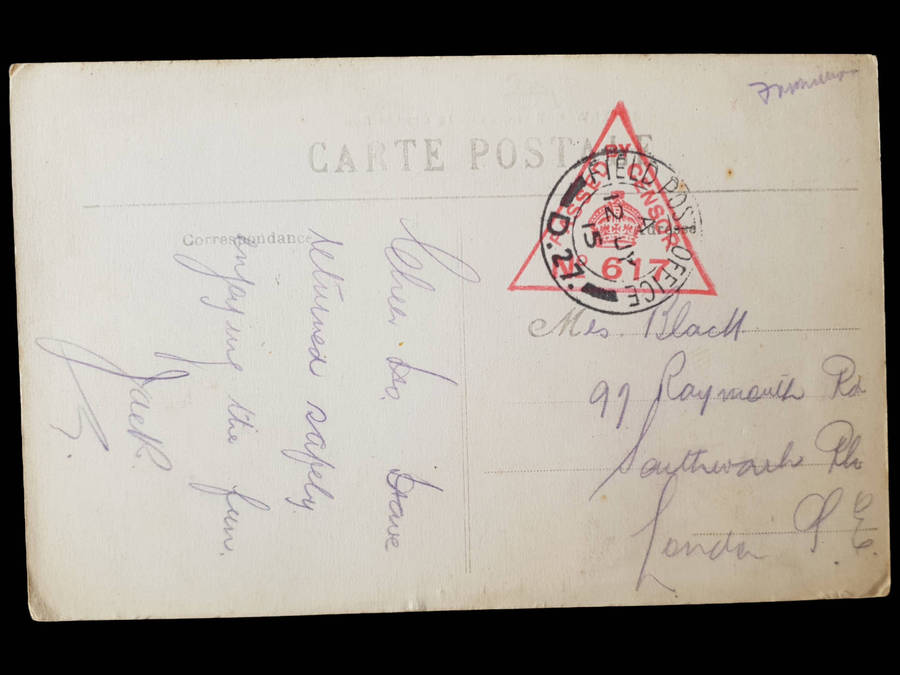 CARTE POSTALE
PASSED BY CENSOR
Nº 617
FIELD POST OFFICE
D.27.
A
12 JY
15
Correspondance
Adresse
Cheer Oo. Have
returned safely.
enjoying the fun.
Jack.
Mrs. Black.
99 Raymouth Rd
Southwark Pk
London S.E.